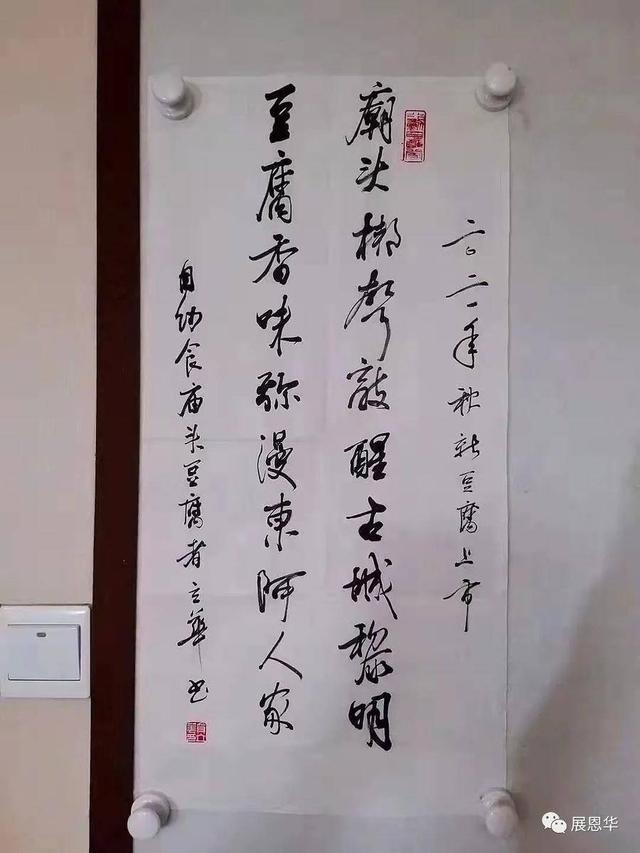 二〇二一年秋新豆腐上市
廟头梆声敲醒古城黎明
豆腐香味弥漫東阿人家
自幼食庙头豆腐者立華书
展恩华